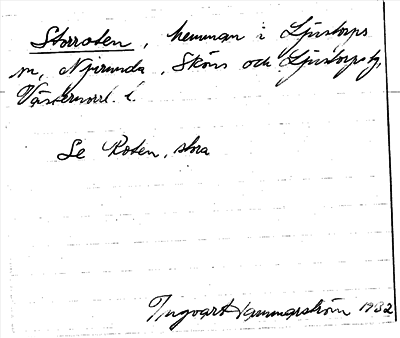 Storroten, hemman i Ljustorps
sn, Njurunda, Sköns och Ljustorps tg,
Västernorrl. l.
Se Roten, stora
Ingvar Hammarström 1932